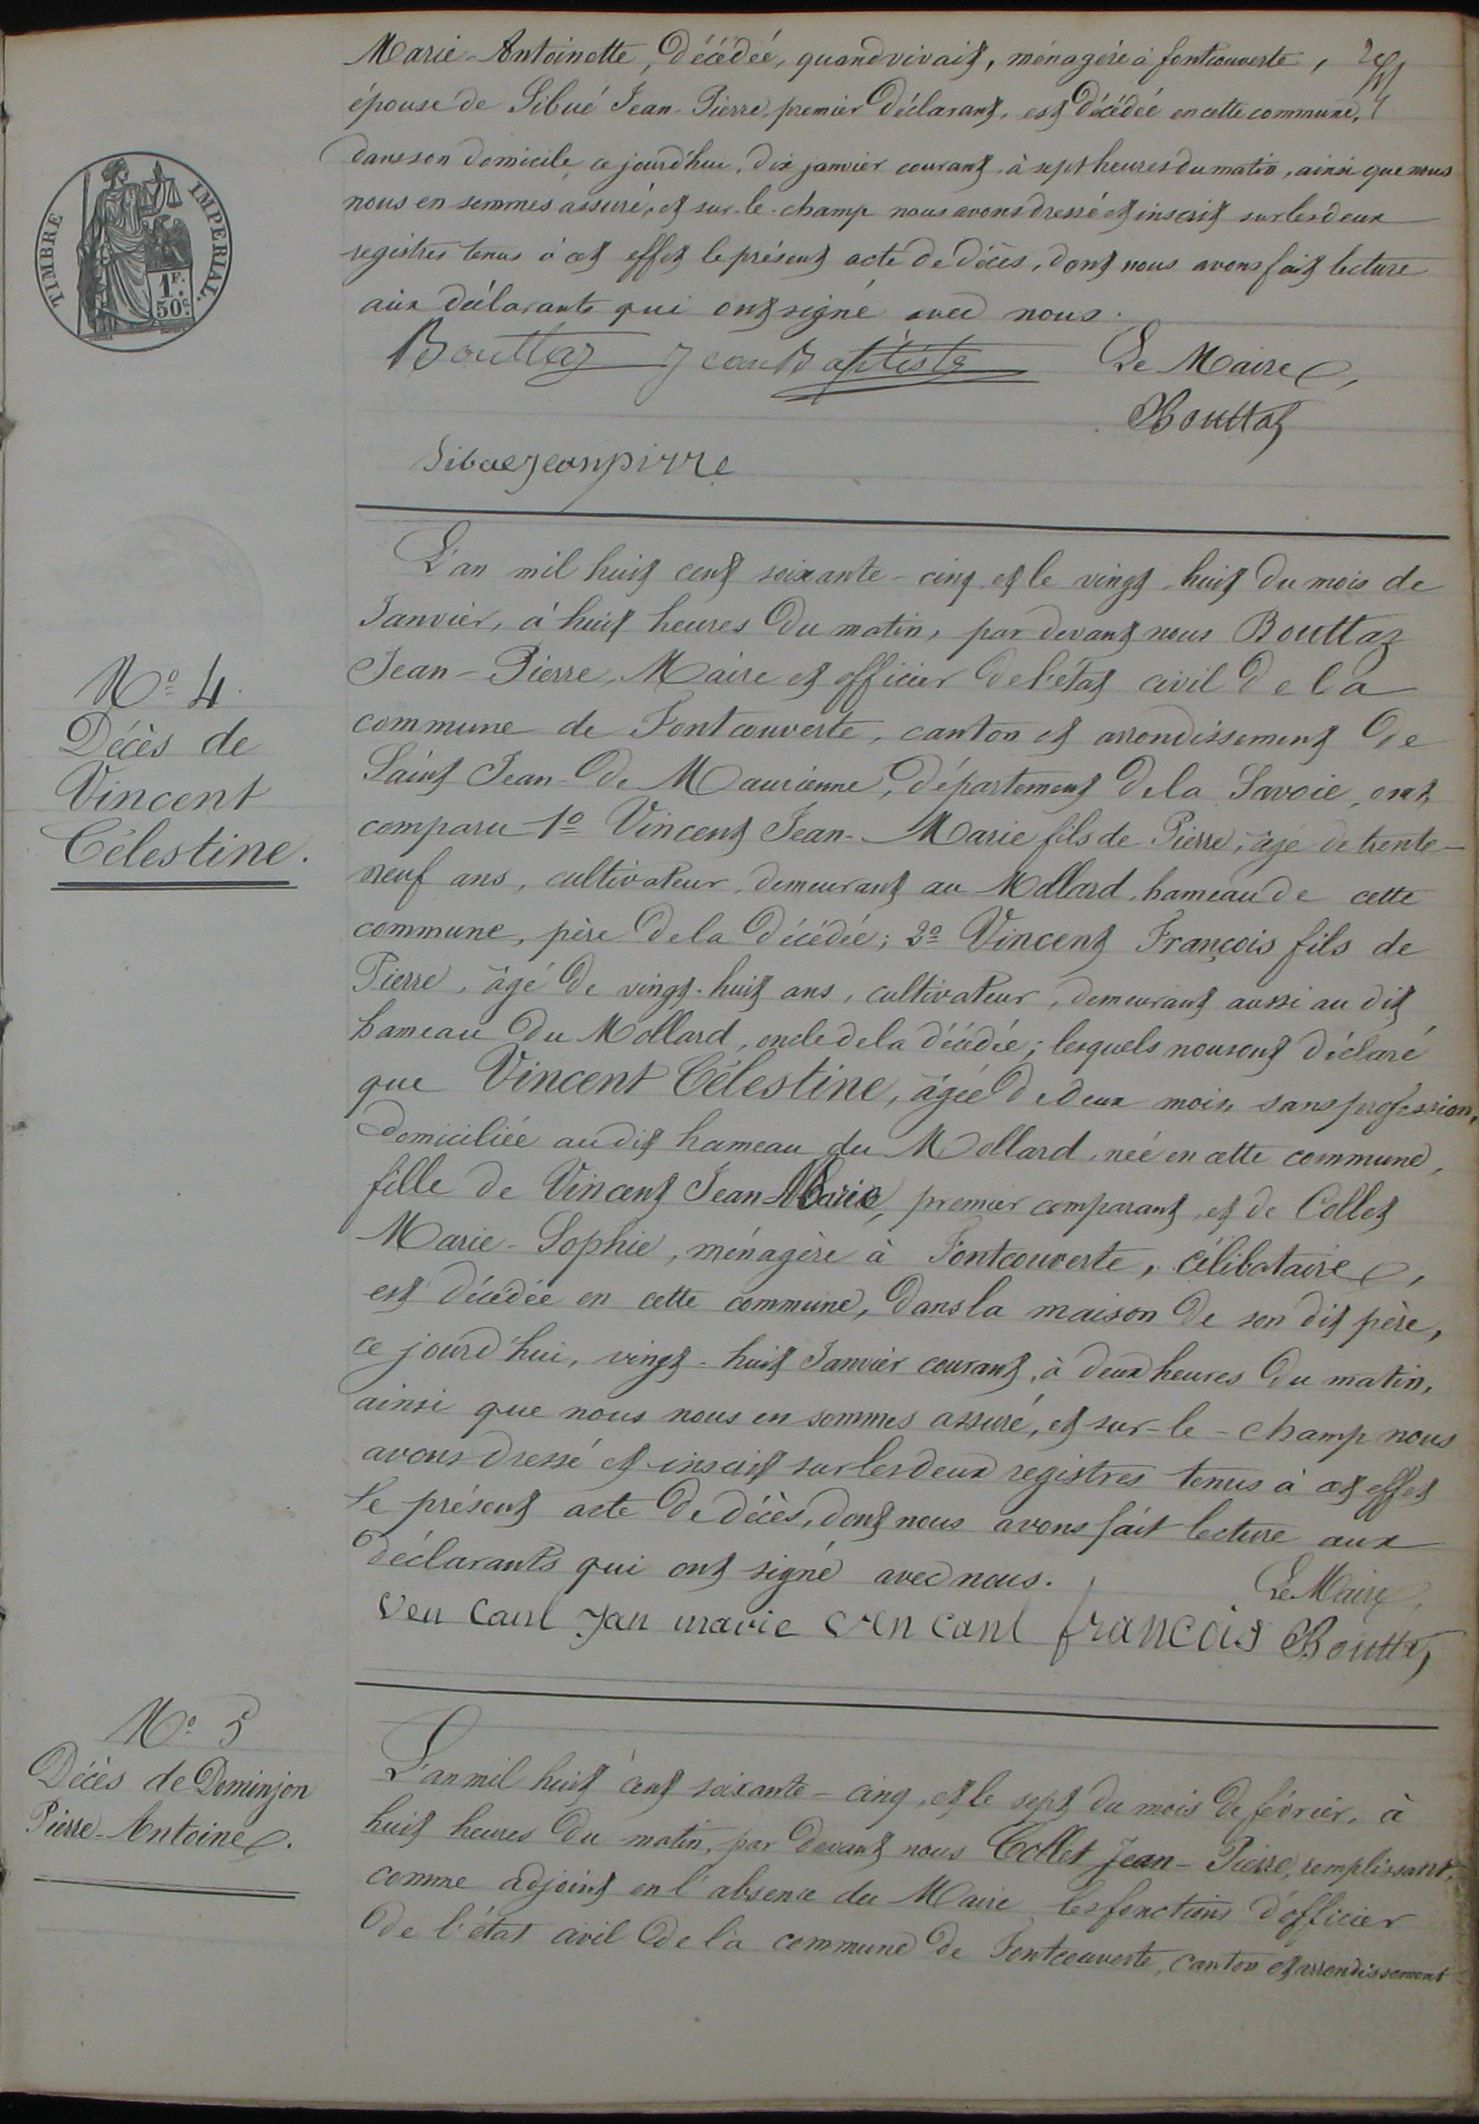 Marie-Antoinette, décédée, quand vivait, ménagère à fontcouverte,
épouse de Sibué Jean-Pierre, premier déclarant, est décédée en cette commune,
dans son domicile, ce jourd'hui, dix janvier courant, à sept heures du matin, ainsi que nous
nous en sommes assuré, et sur-le-champ nous avons dressé et inscrit sur les deux
registres tenus à cet effet le présent acte de décès, dont nous avons fait lecture
aux déclarants qui ont signé avec nous.
TIMBRE IMPERIAL.
1F. 50c
Bouttaz Jean Baptiste Le Maire,
Bouttaz
Sibue jeanpirre
L'an mil huit cent soixante-cinq et le vingt-huit du mois de
Janvier, à huit heures du matin, par devant nous Bouttaz
Jean-Pierre, Maire et officier de l'état civil de la
commune de Fontcouverte, canton et arrondissement de
Saint Jean-de Maurienne, département de la Savoie, ont
comparu 1º Vincent Jean-Marie fils de Pierre, âgé de trente-
neuf ans, cultivateur, demeurant au Mollard, hameau de cette
commune, père de la décédée; 2º Vincent François fils de
Pierre, âgé de vingt-huit ans, cultivateur, demeurant aussi au dit
hameau du Mollard, oncle de la décédée; lesquels nous ont déclaré
que Vincent Célestine, âgée de deux mois, sans profession,
domiciliée au dit hameau du Mollard, née en cette commune,
fille de Vincent Jean-Marie, premier comparant, et de Collet
Marie-Sophie, ménagère à Fontcouverte, célibataire,
est décédée en cette commune, dans la maison de son dit père,
ce jourd'hui, vingt-huit Janvier courant, à deux heures du matin,
ainsi que nous nous en sommes assuré, et sur-le-champ nous
avons dressé et inscrit sur les deux registres tenus à cet effet
le présent acte de décès, dont nous avons fait lecture aux
déclarants qui ont signé avec nous.
Le Maire,
Ven canl Jan marie Ven canl francois Bouttaz
Nº 4.
Décès de
Vincent
Célestine.
Nº 5
Décès de Dominjon
Pierre-Antoine.
L'an mil huit cent soixante-cinq, et le sept du mois de février, à
huit heures du matin, par devant nous Collet Jean-Pierre, remplissant,
comme adjoint en l'absence du Maire les fonctions d'officier
de l'état civil de la commune de Fontcouverte, canton et arrondissement